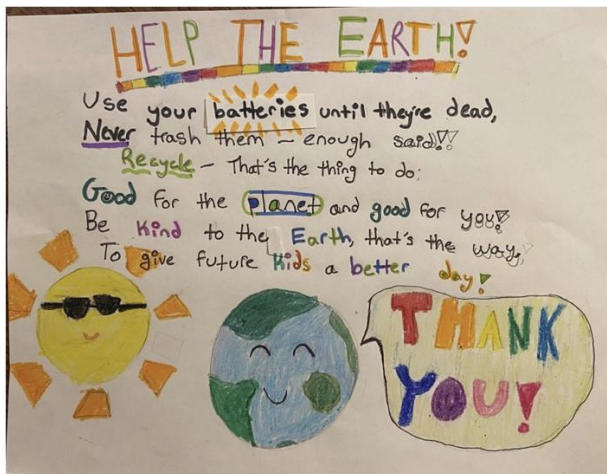 HELP THE EARTH!
Use your batteries until they're dead,
Never trash them - enough said!!
Recycle - That's the thing to do;
Good for the planet and good for you!
Be Kind to the Earth, that's the way,
To give future Kids a better day!
THANK
YOU!